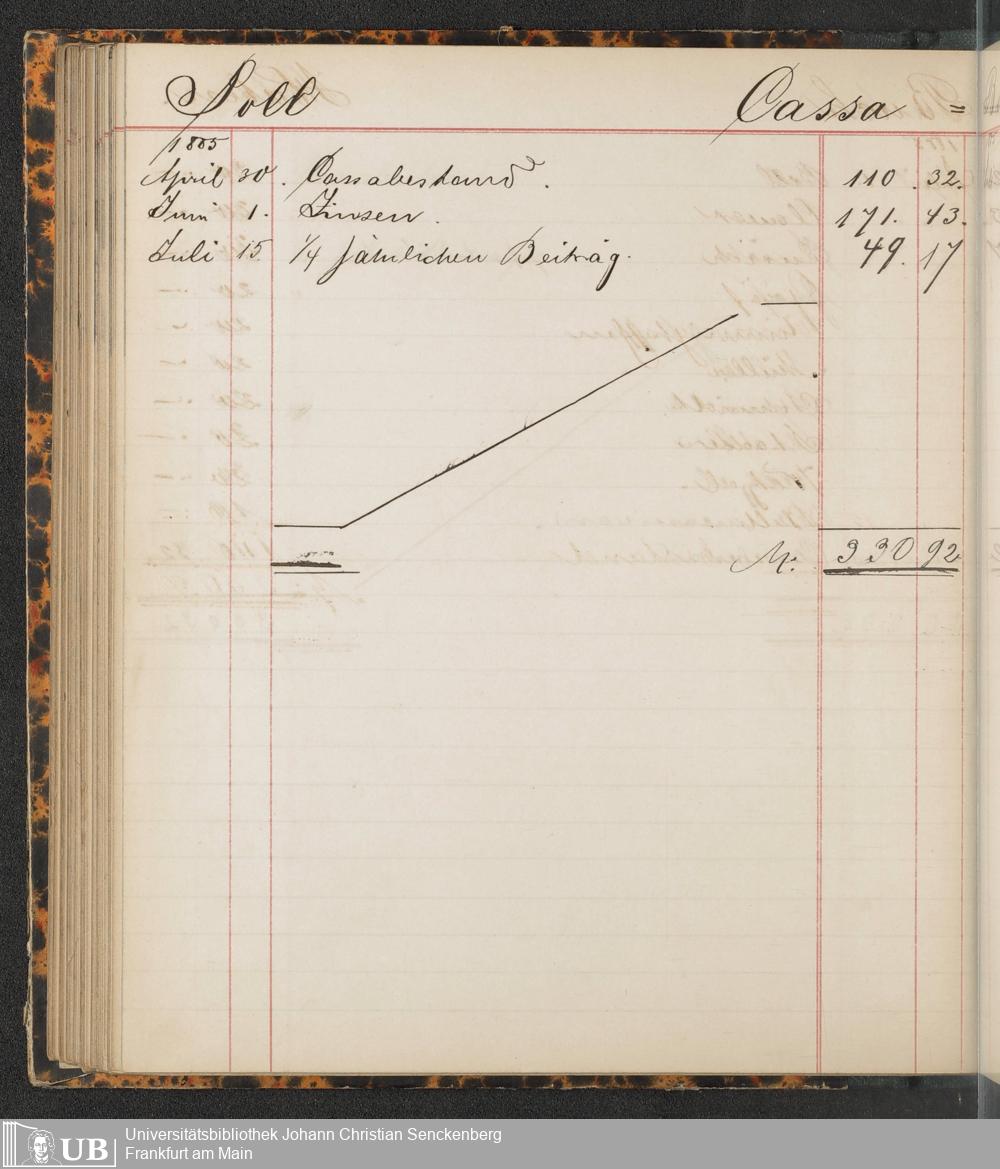 Soll Cassa =
1885
April 30. Cassabestand. 110. 32.
Juni 1. Zinsen. 171. 43.
Juli 15 1/4 jährlichen Beiträg. 49. 17
M. 330 92.
UB Universitätsbibliothek Johann Christian Senckenberg
Frankfurt am Main